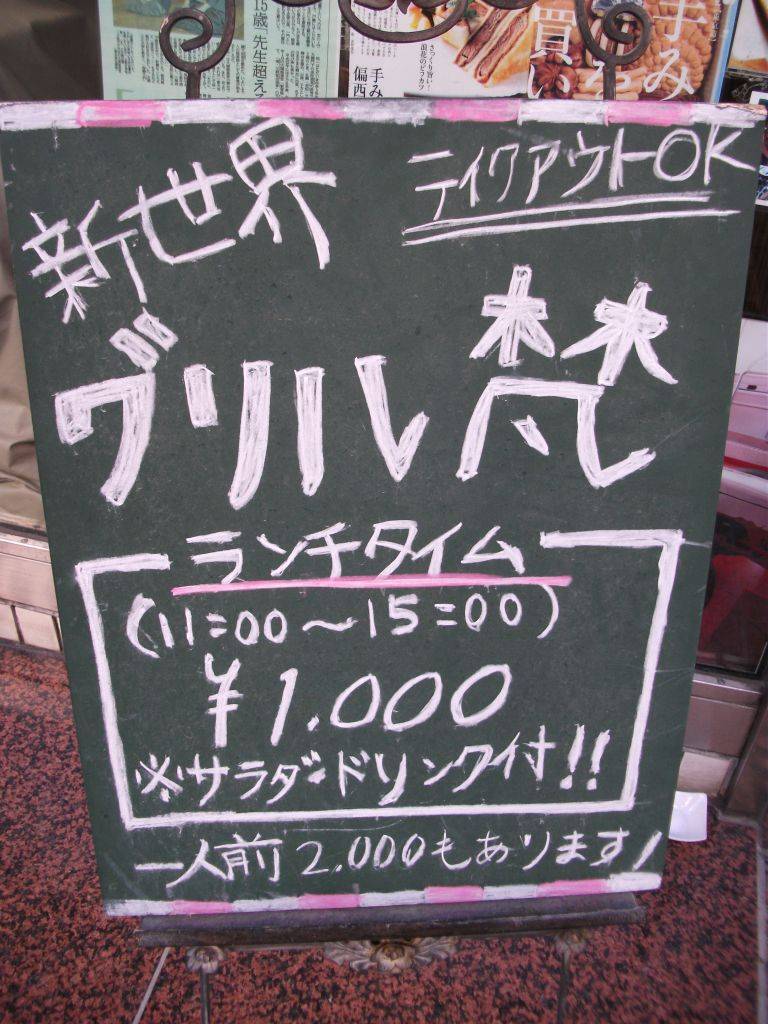 15歳「先生超え
手み
偏西
さっくり旨い!
浪花のどうカツ
手み
買い
新世界
テイクアウトOK
グリル梵
ランチタイム
(11:00〜15:00)
¥1.000
※サラダ・ドリンク付!!
一人前2.000もあります!